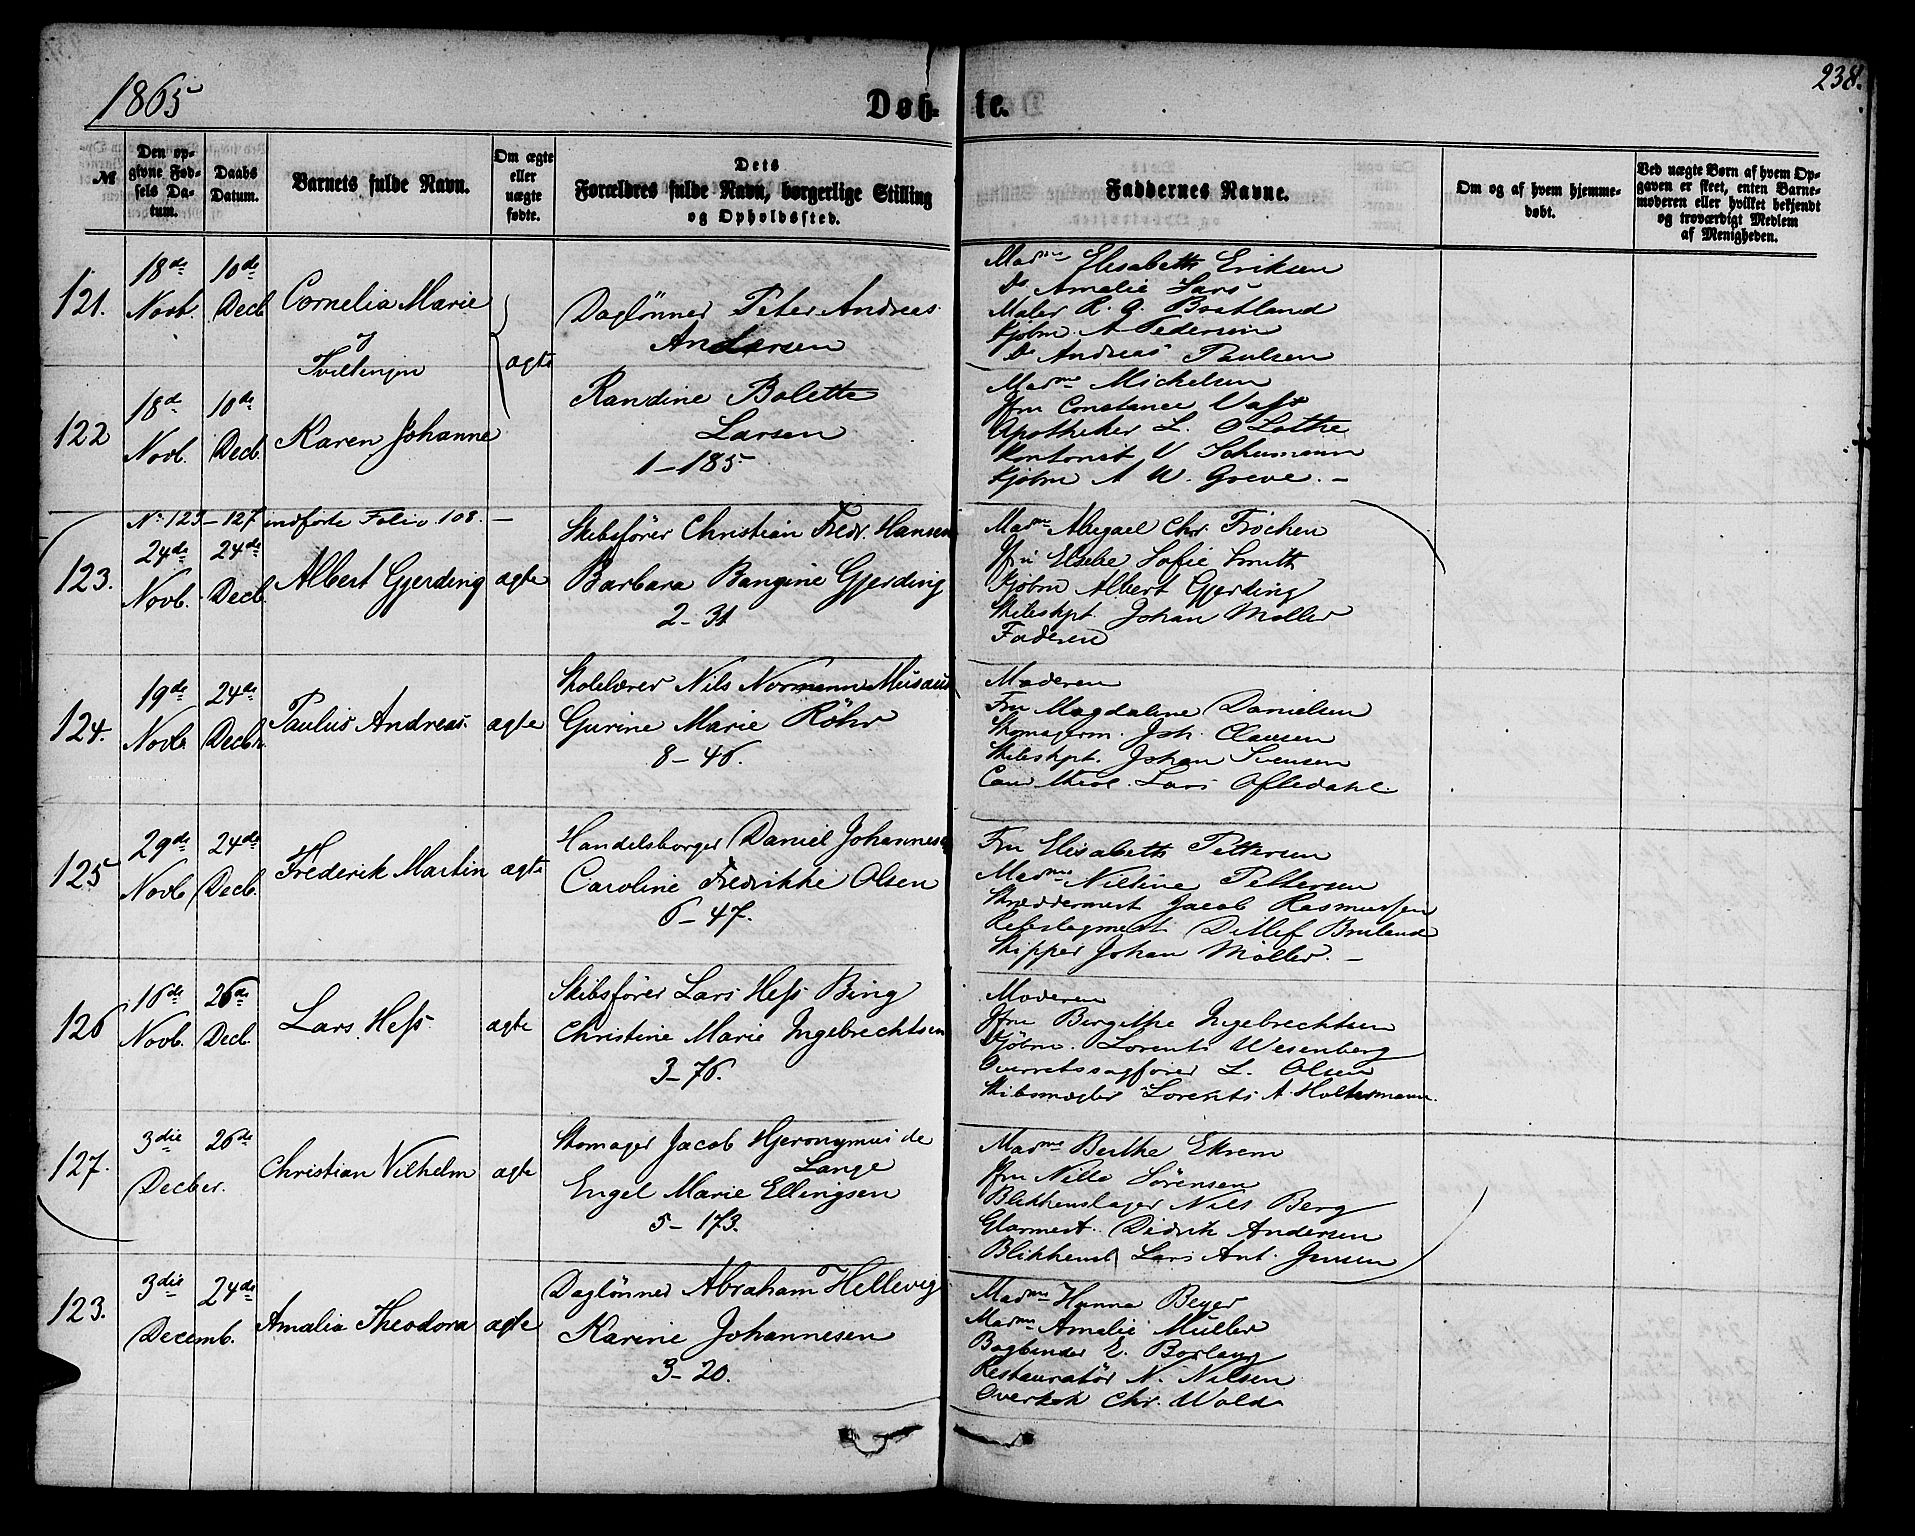 1865
Døb-
te.
238.
№
Den op-
givne Fød-
sels Da-
tum.
Daabs
Datum.
Barnets fulde Navn.
Om ægte
eller
uægte
fødte.
Dets
Forældres fulde Navn, borgerlige Stilling
og Opholdssted.
Faddernes Navne.
Om og af hvem hjemme-
døbt.
Ved uægte Børn af hvem Op-
gaven er skeet, enten Barne-
moderen eller hvilket bekjendt
og troværdigt Medlem
af Menigheden.
121.
18de
Novb.
10de
Decb
Cornelia Marie
Tvillinger
ægte
Daglönner Peter Andreas
Andersen
Madme Elisabeth Eriksen
Do Amalie Lars
Maler R. G. Bratland
Kjøbm. A Pedersen
Do Andreas Paulsen
122
18d
Novb.
10de
Decb.
Karen Johanne
Randine Bolette
Larsen
1-185
Madme Michelsen
Jfru Constance
Apotheker L. O Lothe
Kontorist V Schumann
Kjøbm A W. Greve. -
No 123-127 indførte Folio 108. -
123.
24de
Novb.
24de
Decb.
Albert Gjerding
ægte
Skibsfører Christian Fredr. Hansen
Barbara Bangine Gjerding
2-31
Madme Abegael Chr Fröchen
Jfru Elsebe Sofie Smith
Kjøbm Albert Gjerding
Skibskpt. Johan Møller
Faderen
124.
19de
Novb
24de
Decbr.
Paulus Andreas.
ægte
Skolelærer Nils Normann Musæus
Gurine Marie Röhr
8-46.
Moderen
Fru Magdalene Danielsen
Skomagerm. Joh. Clausen
Skibskpt. Johan Svensen
Can theol. Lars Oftedahl.
125
29de
Novb
24de
Decb.
Frederik Martin
ægte
Handelsborger Daniel Johannesen
Caroline Fredrikke Olsen
6-47.
Fru Elisabeth Pettersen
Madme Nilline Pettersen
Skræddermest Jacob Rasmussen
Rebslagmest Ditlef Bruland
Skipper Johan Møller. -
126
16de
Novb.
26de
Decb.
Lars Hess
ægte
Skibsfører Lars Hess Bing
Christine Marie Ingebrechtsen
3-76.
Moderen
Jfru Bergithe Ingebrechtsen
Kjøbm. Lorents Wesenberg
Overretssagfører L. Olsen
Skibsmægler Lorents A. Holtermann.
127.
3die
26de
Decber.
Christian Vilhelm
ægte
Skomager Jacob Hjeronymus de
Lange
Engel Marie Ellingsen
5-173.
Madme Berthe Ekrem
Jfru Nille Sørensen
Blikkenslager Nils Berg
Glarmest. Didrik Andersen
Blikkensl Lars Ant. Jensen
123.
3die
24de
Decemb.
Amalia Theodora
ægte
Daglönner Abraham Hellevig
Karine Johannesen
3-20.
Madme Hanna Beyer
Madme Amalie Müller
Bogbinder E. Borlaug
Restauratör N. Nilsen
Overkok Chr. Wold